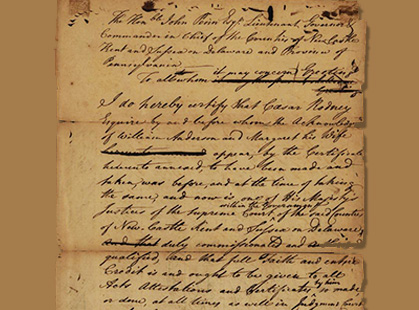 The Honble John Penn Esqr Lieutenant Governor &
Commander in Chief of the Counties of New Castle
Kent and Sussex on Delaware and Province of
Pennsylvania
To all whom it may concern Greeting
I do hereby certify that Cæsar Rodney
Esquire by and before whom the Acknowledgmt
of William Anderson and Margaret his Wife
appear, by the Certificate
hereunto annexed, to have been made and
taken, was before, and at the time of taking
the same, and now is one of His Majesty's
within the Government
Justices of the Supreme Court, of the said Counties
of New Castle Kent and Sussex on Delaware,
duly commissionated and
qualified, And that full Faith and entire
Credit is and ought to be given to all
by him
Acts Attestations and Certificates so made
or done, at all times as well in Judgment Court